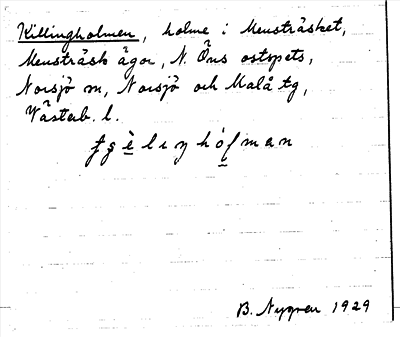 Killingholmen, holme i Mensträsket,
Mensträsk ägor, N. Öns ostspets,
Norsjö sn, Norsjö och Malå tg,
Västerb. l.
B. Nygren 1929